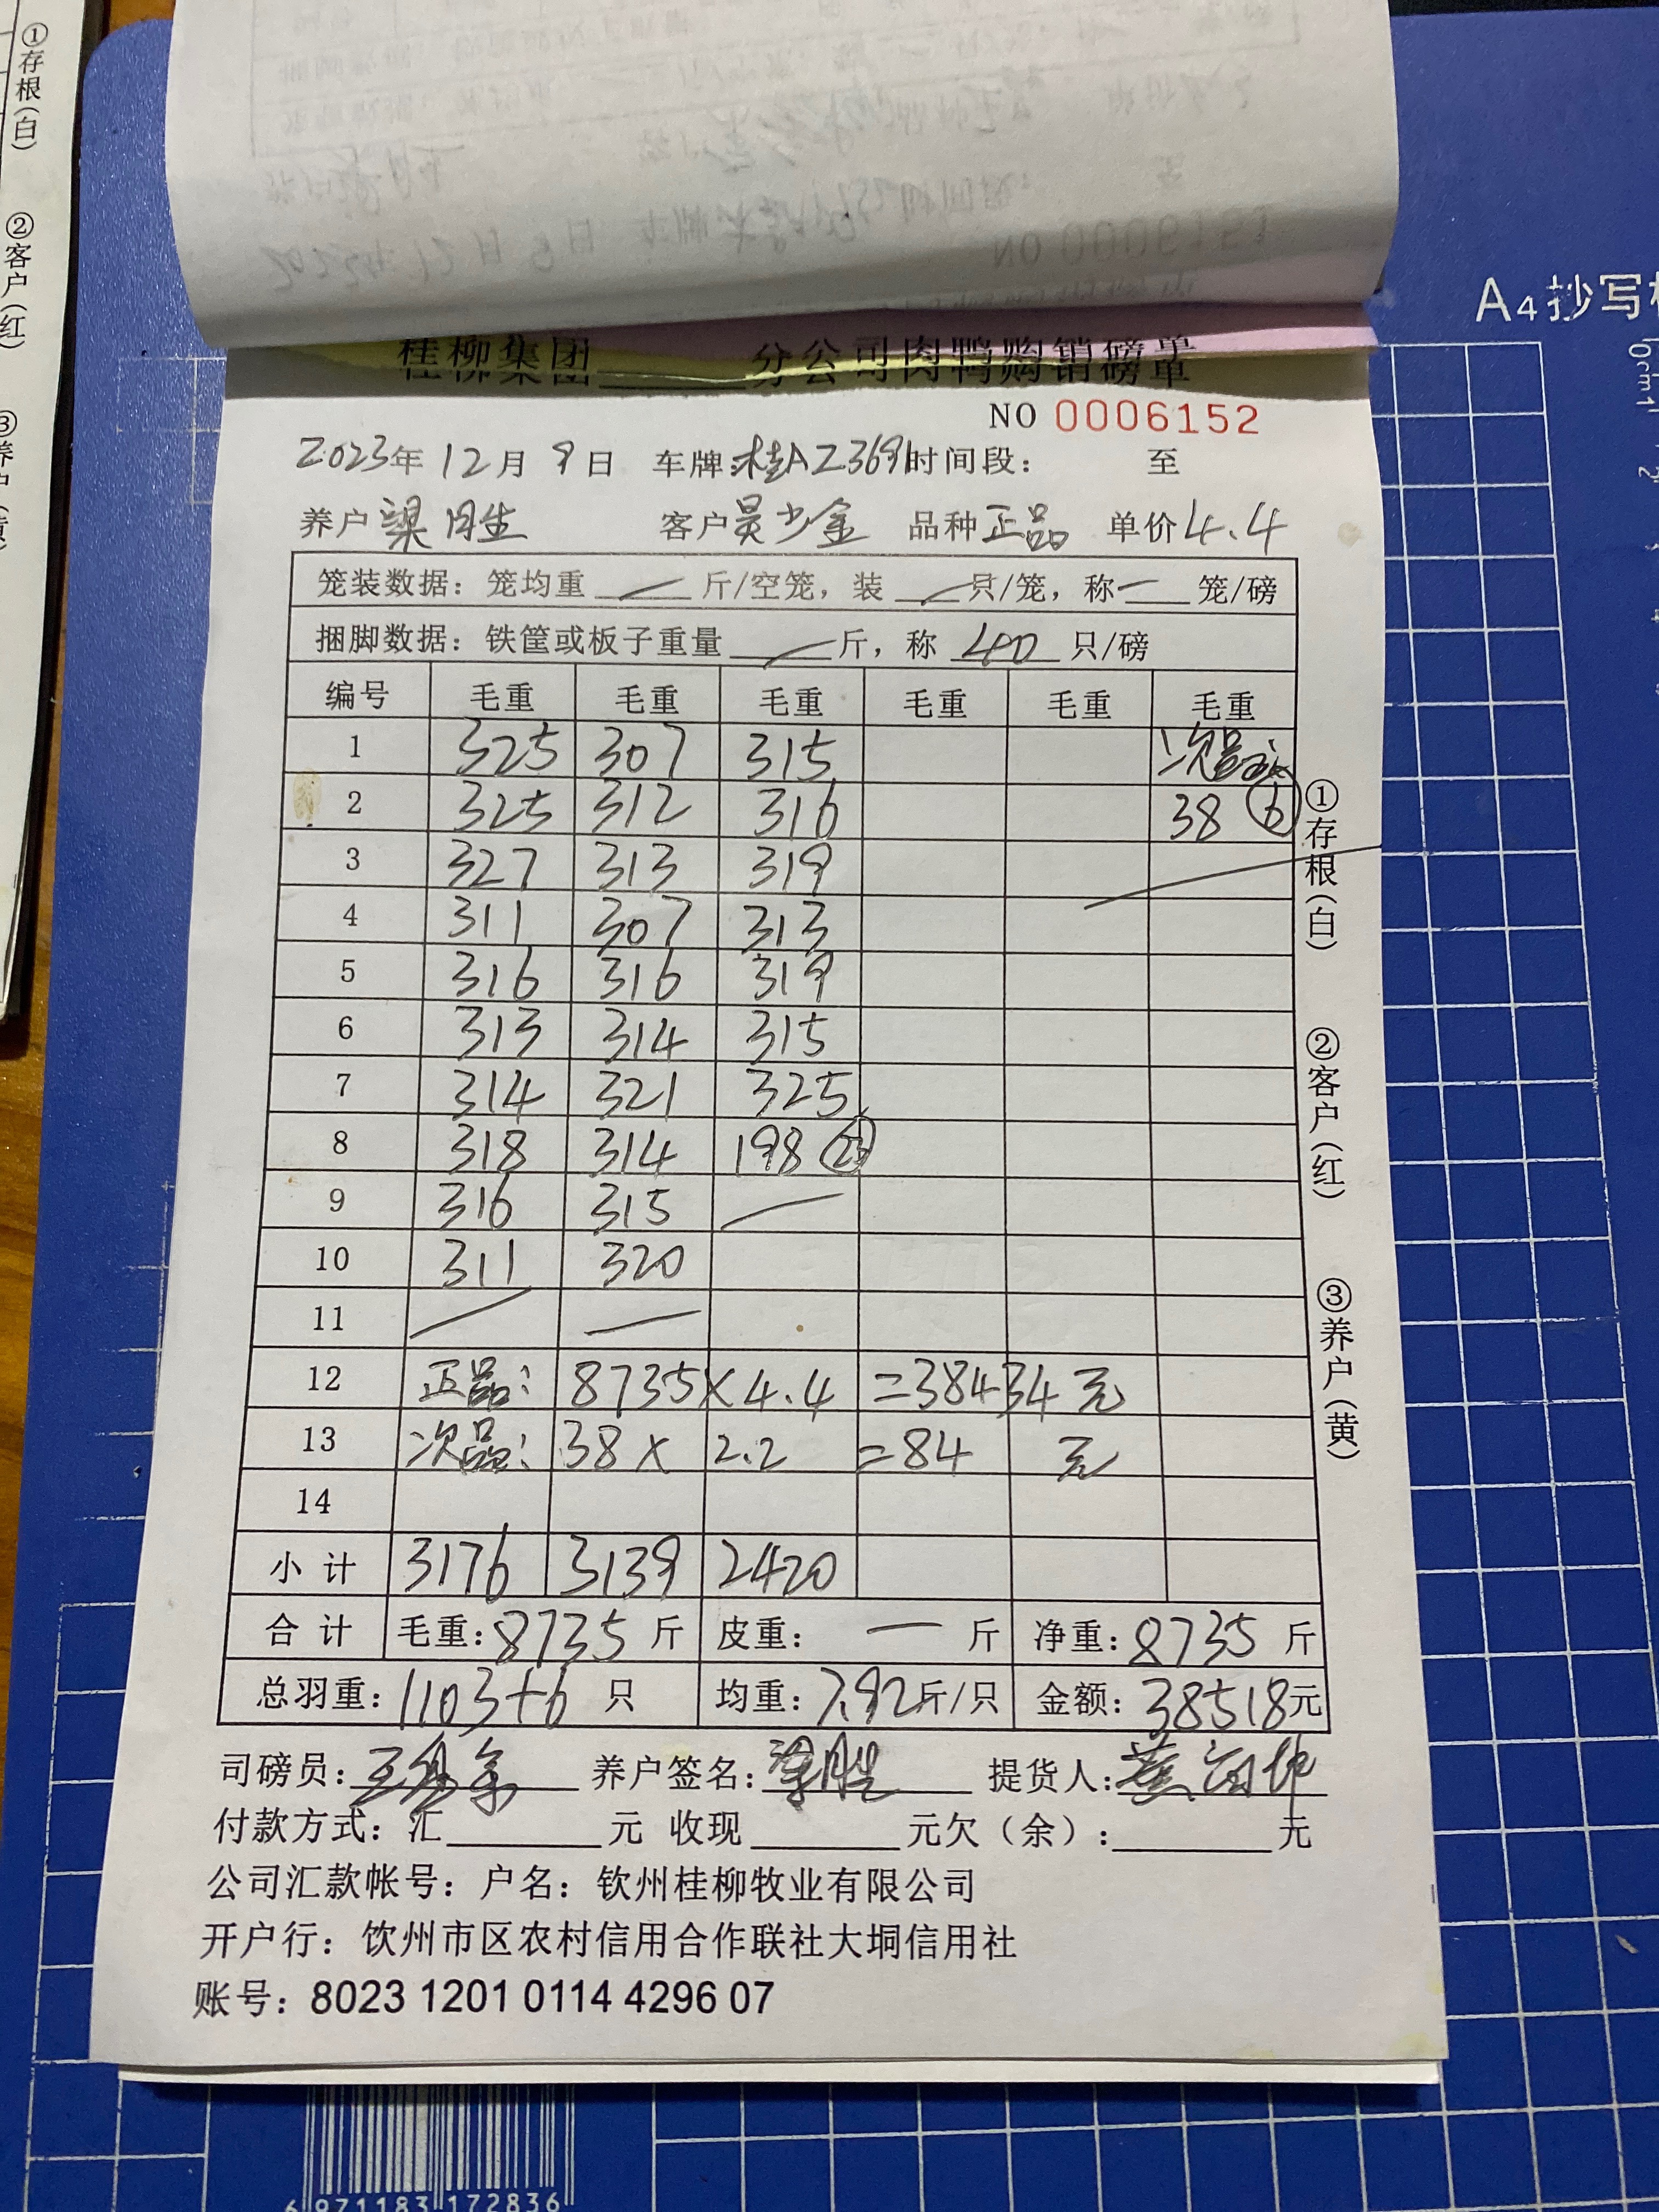 桂柳集团______分公司肉鸭购销磅单
NO 0006152
2023年 12月 9日 车牌:桂AZ3691 时间段: 至
养户 梁月生 客户 吴少金 品种 正品 单价 4.4
笼装数据: 笼均重 — 斤/空笼, 装 — 只/笼, 称 — 笼/磅
捆脚数据: 铁筐或板子重量 — 斤, 称 40 只/磅
编号 毛重 毛重 毛重 毛重 毛重 毛重
1 325 307 315 次品
2 325 312 316 38 ⑥
3 327 313 319
4 311 307 313
5 316 316 319
6 313 314 315
7 314 321 325
8 318 314 198
9 316 315 —
10 311 320
11 — —
12 正品: 8735×4.4 =38434元
13 次品: 38× 2.2 =84 元
14
小计 3176 3139 2420
合计 毛重: 8735 斤 皮重: — 斤 净重: 8735 斤
总羽重: 1103+6 只 均重: 7.92斤/只 金额: 38518元
司磅员: 养户签名: 提货人:
付款方式: 汇______元 收现______元欠(余):______元
公司汇款帐号: 户名: 钦州桂柳牧业有限公司
开户行: 饮州市区农村信用合作联社大垌信用社
账号: 8023 1201 0114 4296 07
①存根(白) ②客户(红) ③养户(黄)
①存根(白) ②客户(红) ③养户(黄)
A4抄写
0cm1
2
6 971183 172836